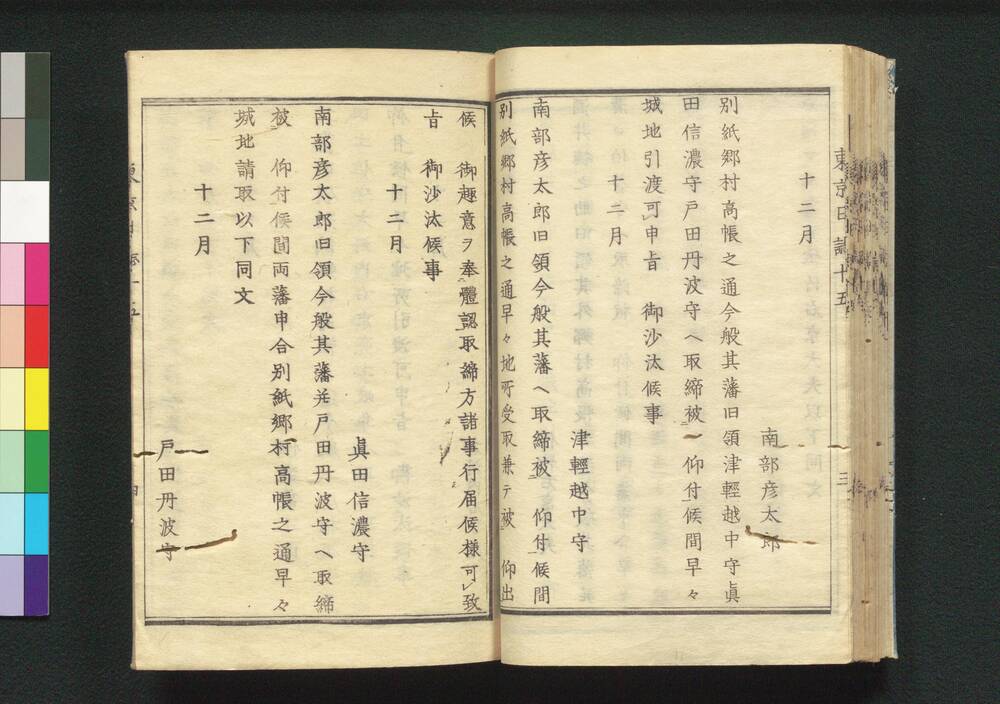 東京日誌十五
三
十二月
南部彦太郎
別紙郷村高帳之通今般其藩旧領津輕越中守眞
田信濃守戸田丹波守ヘ取締被 仰付候間早々
城地引渡可申旨 御沙汰候事
十二月
津輕越中守
南部彦太郎旧領今般其藩ヘ取締被 仰付候間
別紙郷村高帳之通早々地所受取兼テ被 仰出
候 御趣意ヲ奉體認取締方諸事行届候様可致
旨 御沙汰候事
十二月
眞田信濃守
南部彦太郎旧領今般其藩并戸田丹波守ヘ取締
被 仰付候間両藩申合別紙郷村高帳之通早々
城地請取以下同文
十二月
戸田丹波守